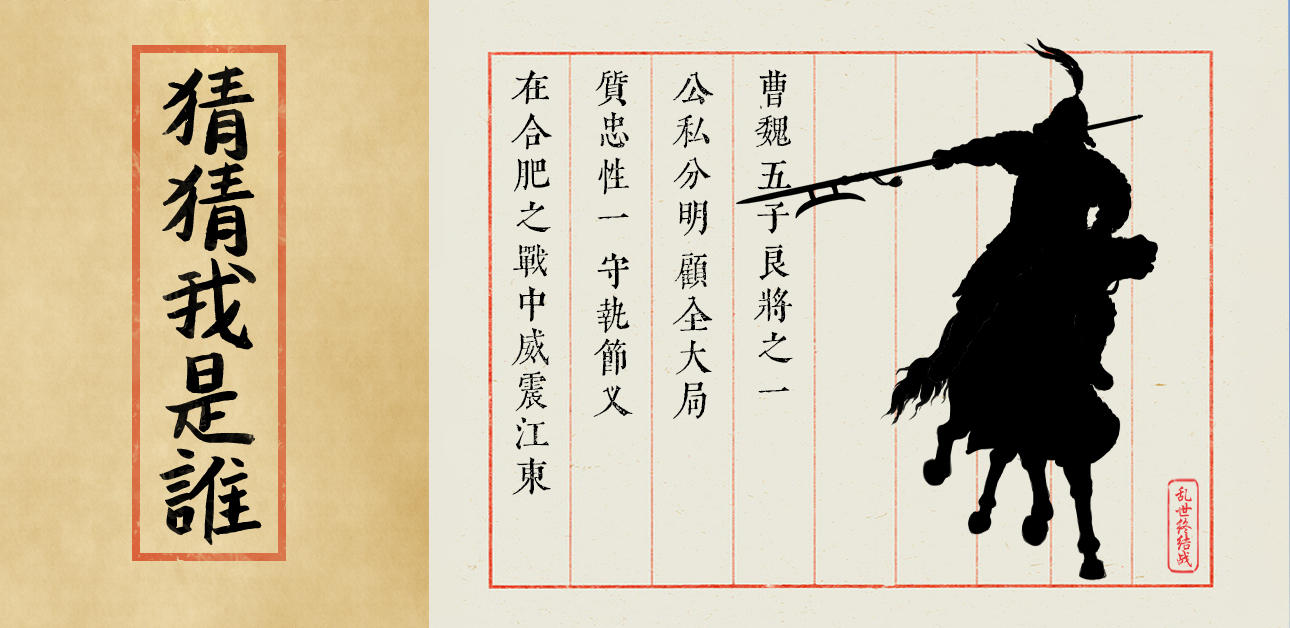 猜猜我是誰
曹魏五子良將之一
公私分明 顧全大局
質忠性一 守執節义
在合肥之戰中威震江東
乱世终结战